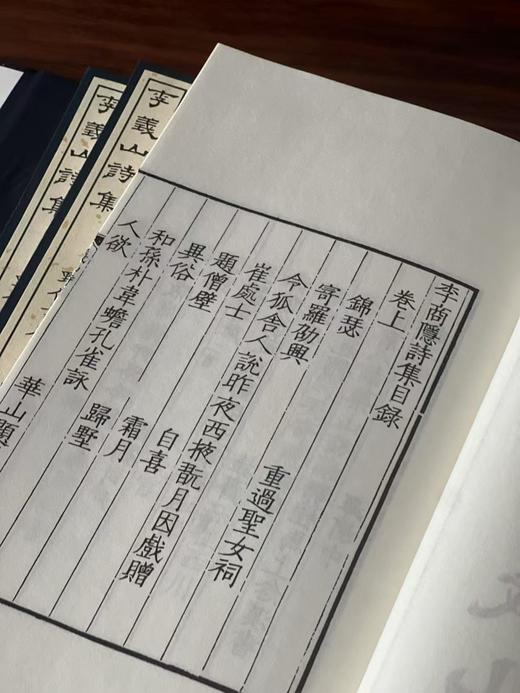 李商隱詩集目錄
卷上
錦瑟 重過聖女祠
寄羅劭興
令狐舍人說昨夜西掖翫月因戲贈
崔處士 自喜
題僧壁 霜月
異俗 歸墅
和孫朴韋蟾孔雀詠
人欲 華山題
李義山詩集
李義山詩集